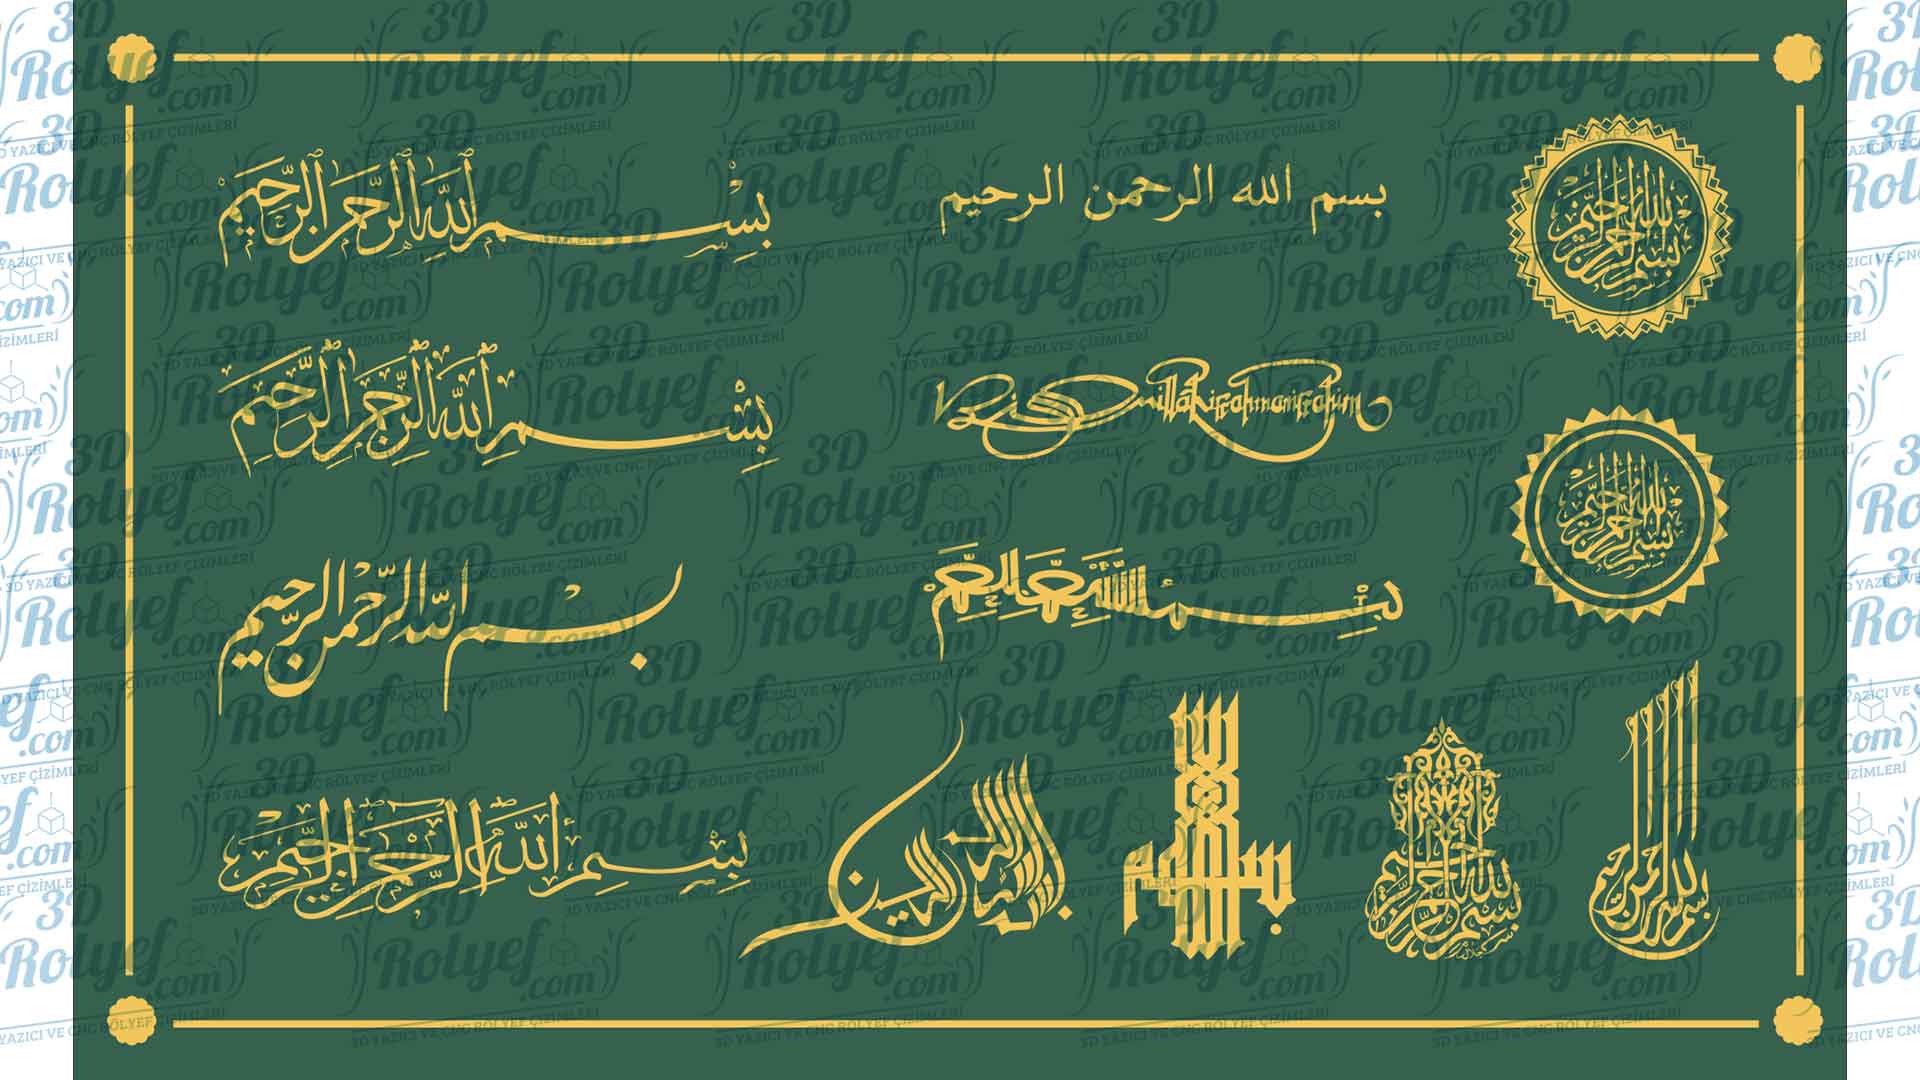 بِسْمِ اللَّهِ الرَّحْمَٰنِ الرَّحِيمِ
بسم الله الرحمن الرحيم
بسم الله الرحمن الرحيم
بِسْمِ اللَّهِ الرَّحْمَٰنِ الرَّحِيمِ
Bismillahirrahmanirrahim
بسم الله الرحمن الرحيم
بسم الله الرحمن الرحيم
بسم الله الرحمن الرحيم
بِسْمِ اللَّهِ الرَّحْمَٰنِ الرَّحِيمِ
بسم الله الرحمن الرحيم
بسم الله الرحمن الرحيم
3D
Rolyef
.com
3D YAZICI VE CNC RÖLYEF ÇİZİMLERİ